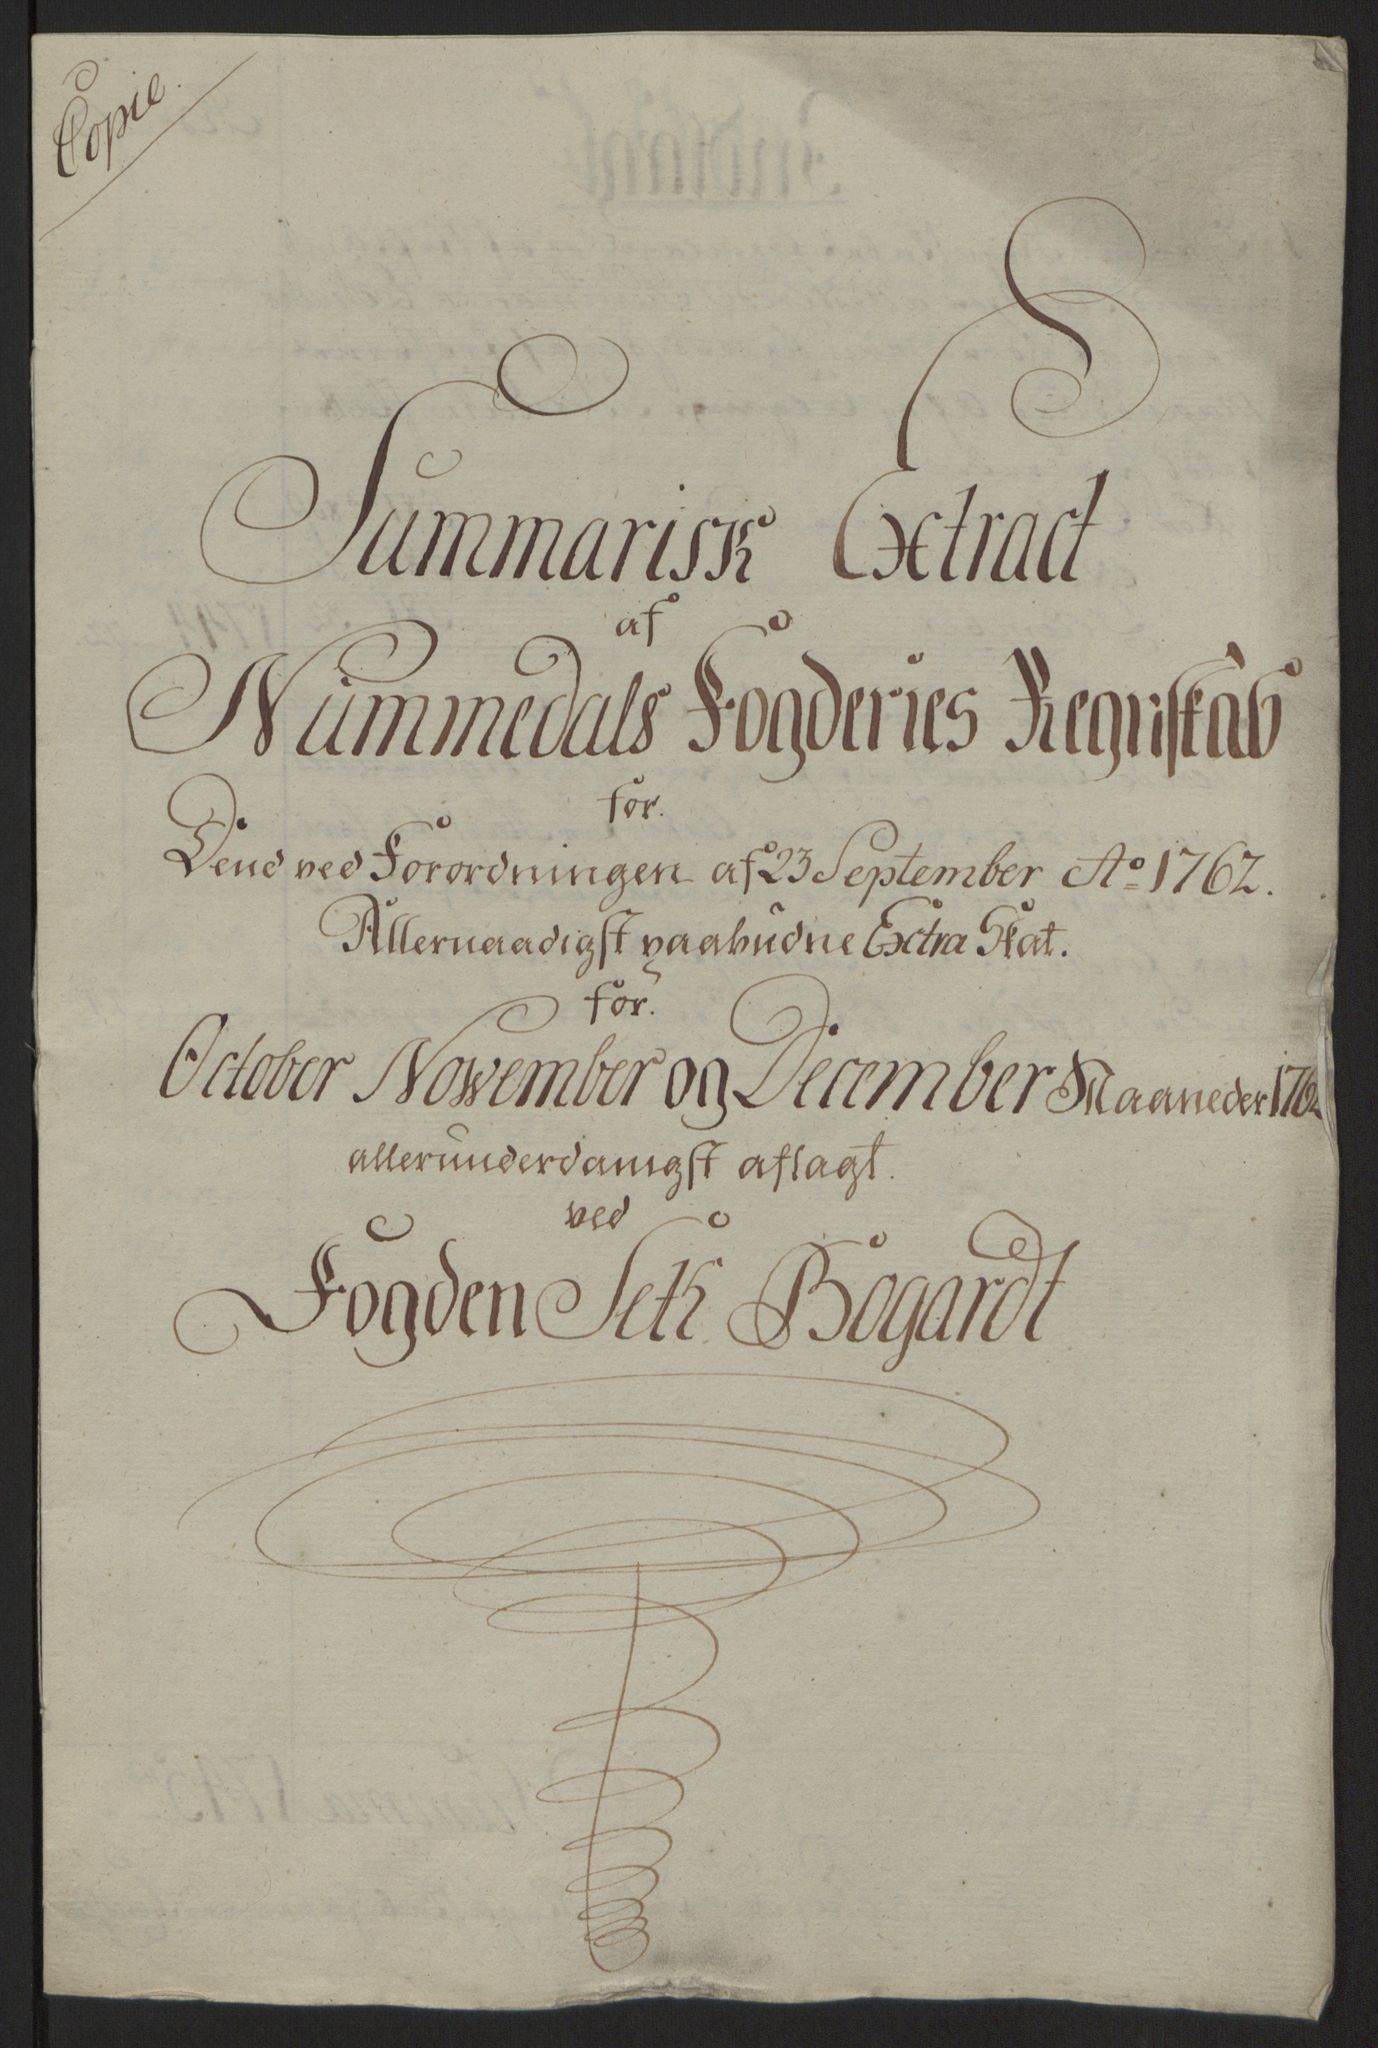 Copie
Summarisk Extract
af
Nummedals Fogderies Regnskab
for.
Dend ved Forordningen af 23 September Ao 1762.
Allernaadigst paabudne Extra Skat.
for.
October Nowember og December Maaneder 1762
allerunderdanigst aflagt.
ved
Fogden Seth Bogardt